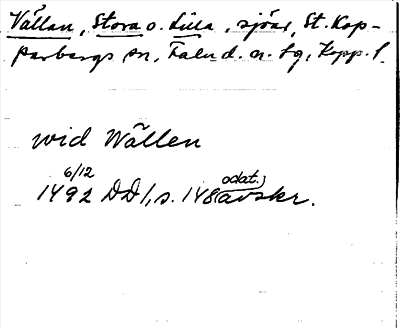 Vällan, Stora o. Lilla, sjöar, St. Kop-
parbergs sn, Falu d. n. lg, Kopp. l.
wid Wällen
6/12
1492 DD 1, s. 148 (odat.) avskr.